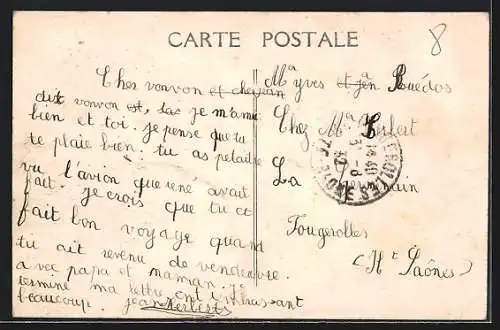 8
CARTE POSTALE
Cher vonvon et chejean
dix vonvon est, las je m'amuse
bien et toi. je pense que tu
te plaie bien. tu as petaitre
vu l'avion que rené avait
fait. je crois que tu as
fait bon voyage quand
tu ait revenu de vendeuvre
avec papa et maman. Je
termine ma lettre ont t'embrassant
beaucoup. jean Herbert
Ma yves et jean Ruédos
Chez Ma Herbert
La Germinain
Fougerolles
(Hte Saônes)
FOUGEROLLES
14 40
3 - 8
32
HTE SAONE